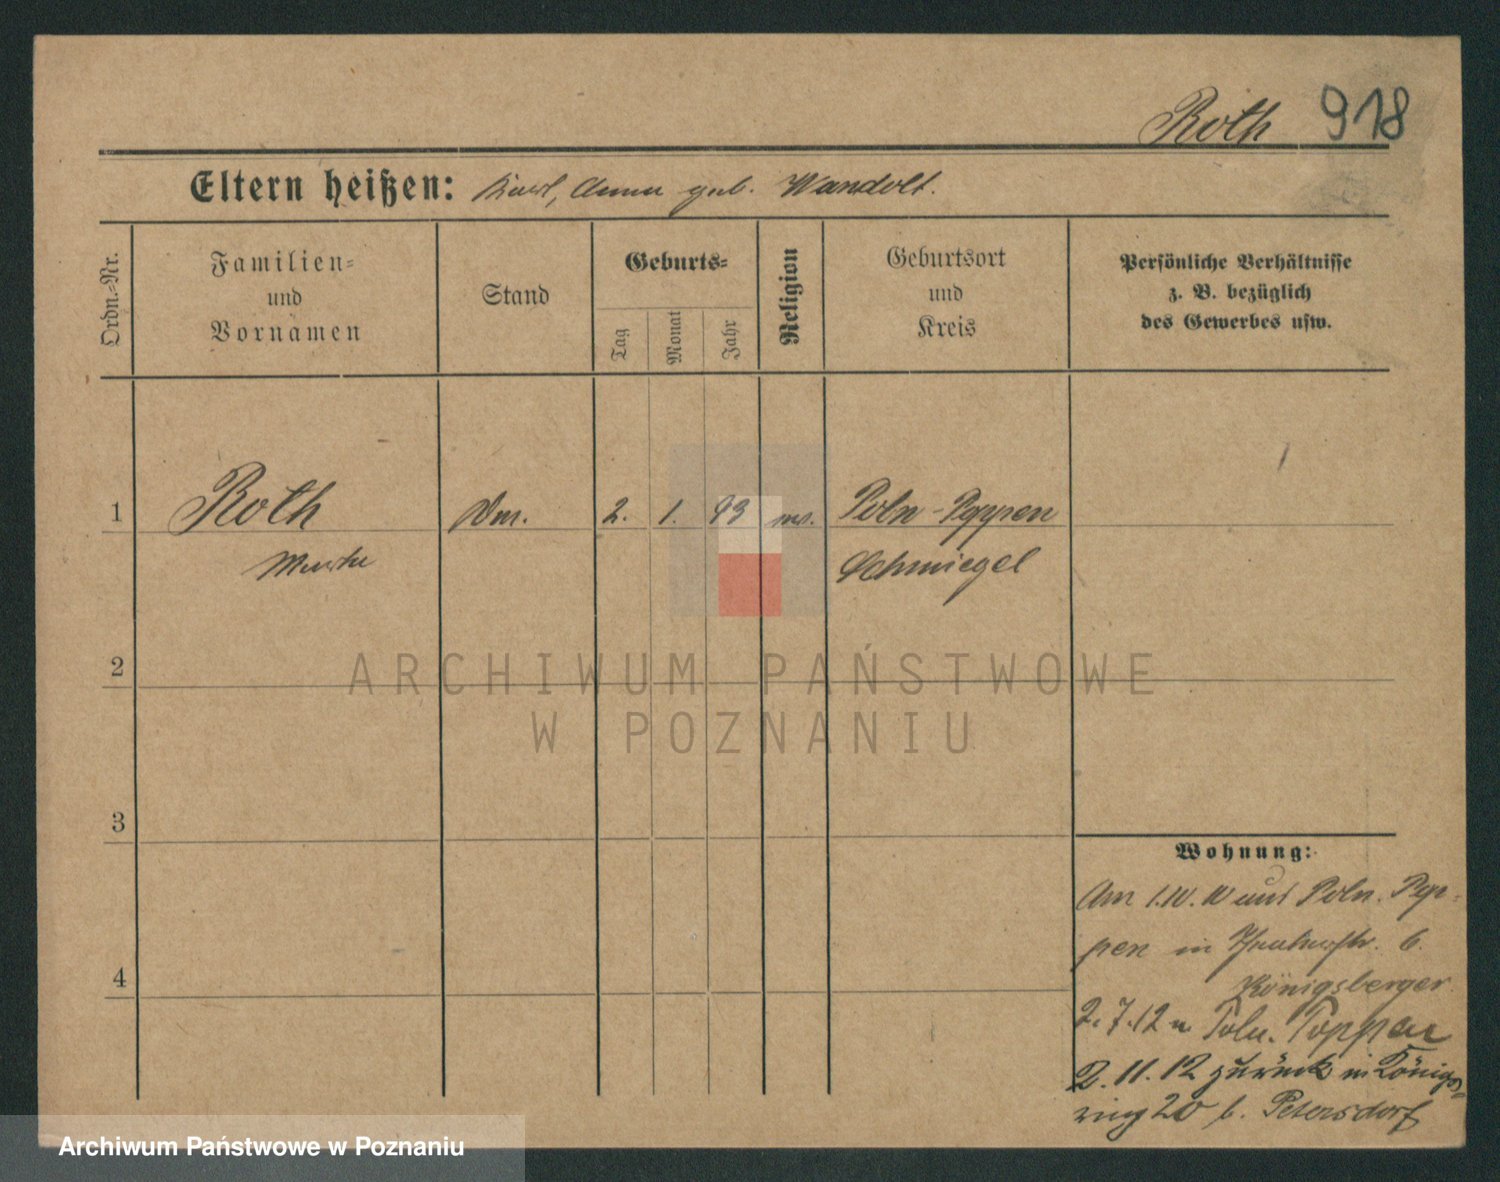 Roth 918
Eltern heißen: Karl, Anna geb. Wandolt.
Ordn.-Nr.
Familien-
und
Vornamen
Stand
Geburts-
Tag
Monat
Jahr
Religion
Geburtsort
und
Kreis
Persönliche Verhältnisse
z. B. bezüglich
des Gewerbes usw.
1 Roth 2. 1. 93 Poln-Poppen
Schmiegel
2
ARCHIWUM PAŃSTWOWE
W POZNANIU
3
4
Wohnung:
Am 1.10.10 aus Poln. Pop-
pen in 6.
Königsberger
2.7.12 n Poln. Poppen
2.11.12 zurück in Königs-
ring 20 b. Petersdorf
Archiwum Państwowe w Poznaniu